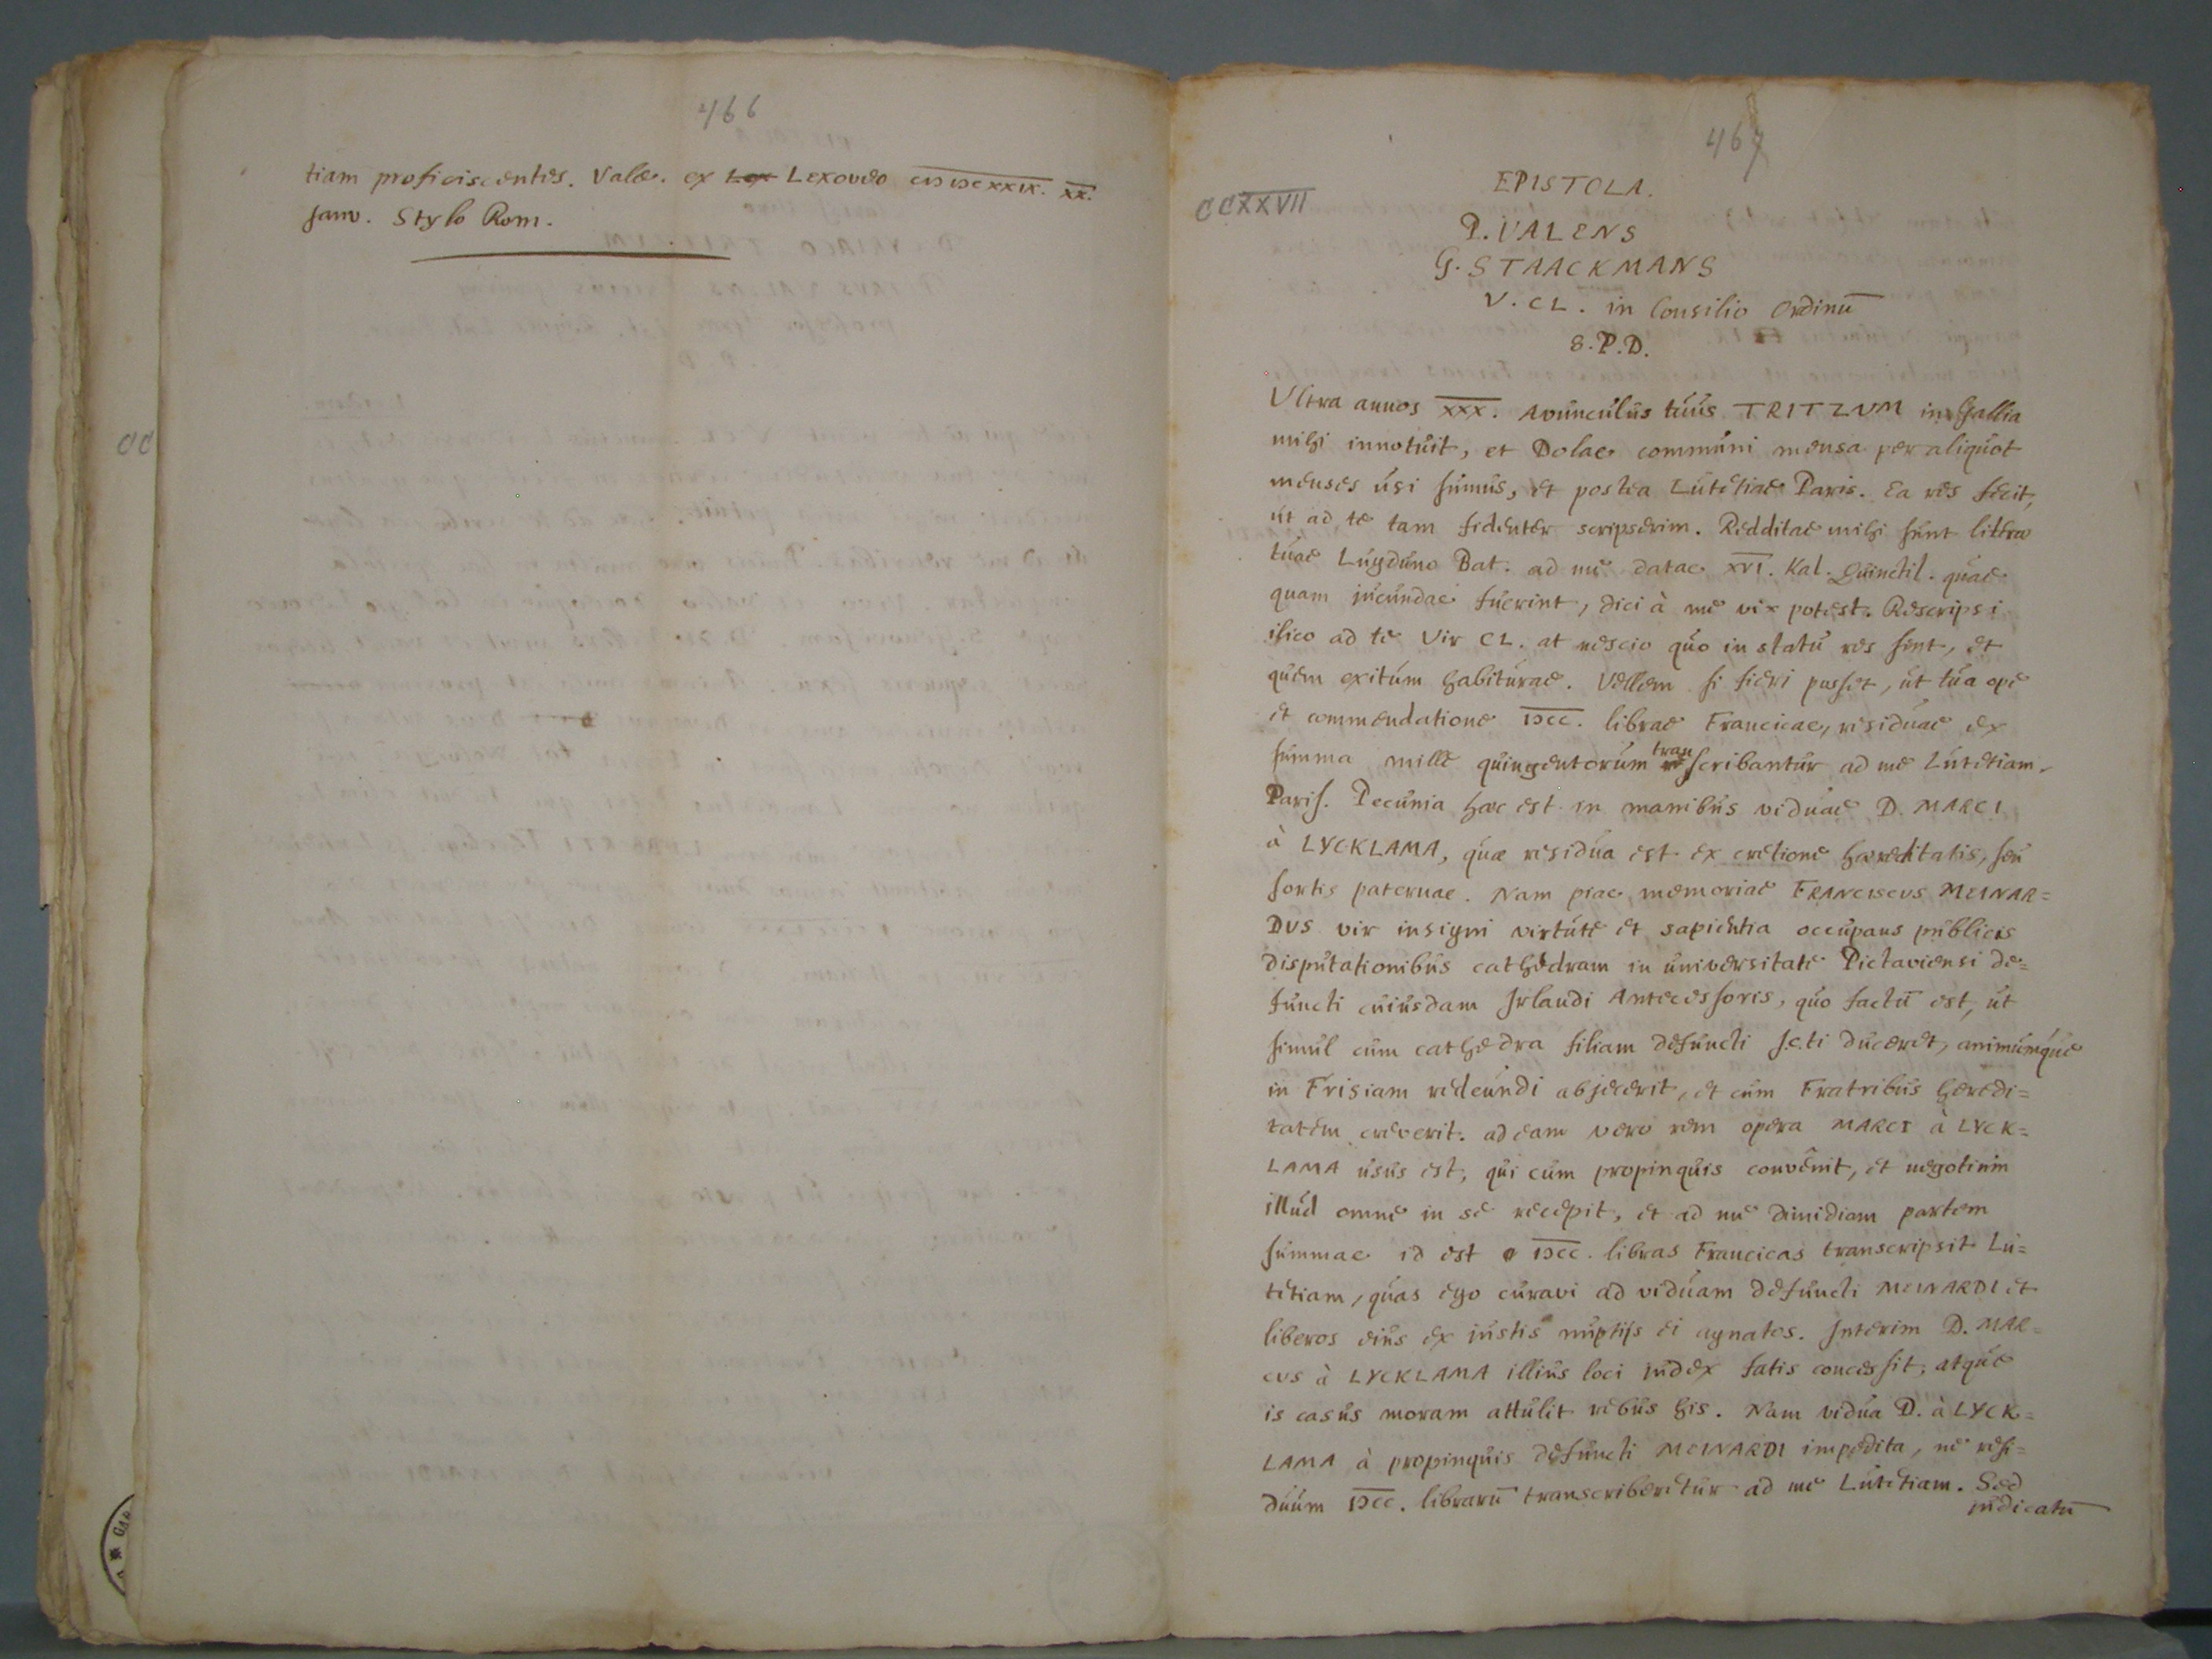 466
tiam proficiscentes. Vale. ex Lex Lexoveo CIƆ IƆCXXIX. XX.
Janv. Stylo Rom.
467
CCXXVII
EPISTOLA.
P. VALENS
G. STAACKMANS
V. CL. in Consilio Ordinū
S.P.D.
Ultra annos XXX. Avunculus tuus TRITZUM in Gallia
mihi innotuit, et Dolae communi mensa per aliquot
menses usi sumus, et postea Lutetiae Paris. Ea res fecit,
ut ad te tam fidenter scripserim. Redditae mihi sunt litterae
tuae Lugduno Bat. ad me datae XVI. Kal. Quinctil. quae
quam jucundae fuerint, dici à me vix potest. Rescripsi
ilico ad te Vir CL. at nescio quo in statu res sint, et
quem exitum habiturae. Vellem si fieri posset, ut tua ope
et commendatione IƆCC. librae Francicae, residuae ex
summa mille quingentorum transcribantur ad me Lutetiam
Paris. Pecunia haec est in manibus viduae D. MARCI
à LYCKLAMA, quae residua est ex cretione haereditatis, seu
sortis paternae. Nam piae memoriae FRANCISCUS MEINAR=
DUS vir insigni virtute et sapientia occupans publicis
disputationibus cathedram in universitate Pictaviensi de=
functi cuiusdam Irlandi Antecessoris, quo factū est, ut
simul cum cathedra filiam defuncti s.c.ti duceret, animumque
in Frisiam redeundi abjecerit, et cum Fratribus heredi=
tatem creverit. ad eam vero rem opera MARCI à LYCK=
LAMA usus est, qui cum propinquis convênit, et negotium
illud omne in se recepit, et ad me dimidiam partem
summae id est IƆCC. libras Francicas transcripsit Lu=
tetiam, quas ego curavi ad viduam defuncti MEINARDI et
liberos eius ex justis nuptijs ei agnatos. Interim D. MAR=
CUS à LYCKLAMA illius loci judex fatis concessit, atque
is casus moram attulit rebus his. Nam vidua D. à LYCK=
LAMA à propinquis defuncti MEINARDI impedita, ne resi=
duum IƆCC. librarū transcriberetur ad me Lutetiam. Sed
judicatū